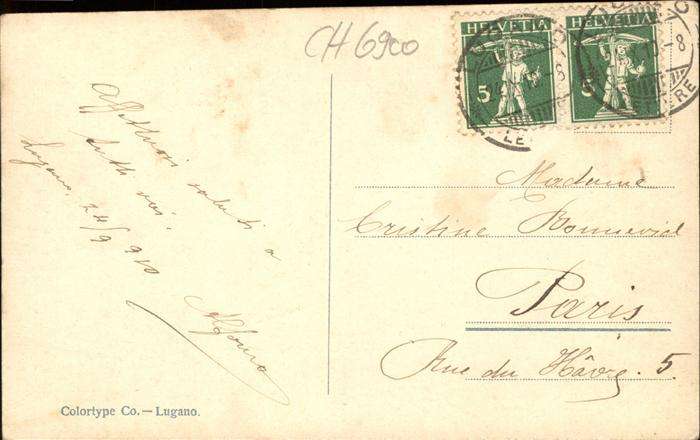 CH 6900
HELVETIA HELVETIA
5 5
Affettuosi saluti a
tutti voi.
Lugano, 24/9 910
Madame
Cristine Bonnevid
Paris
Rue du Hâvre. 5.
Colortype Co. — Lugano.